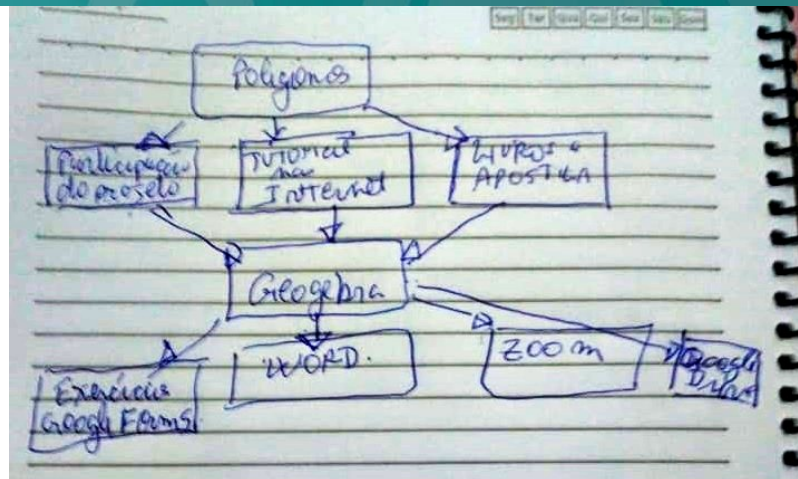 Seg Ter Qua Qui Sex Sáb Dom
Poligonos
Participação
do projeto
Tutorial
na
Internet
LIVROS e
APOSTILA
Geogebra
Exercícios
Google Forms
WORD.
Zoom
Google
Drive